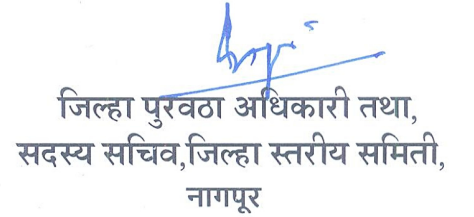 जिल्हा पुरवठा अधिकारी तथा,
सदस्य सचिव,जिल्हा स्तरीय समिती,
नागपूर